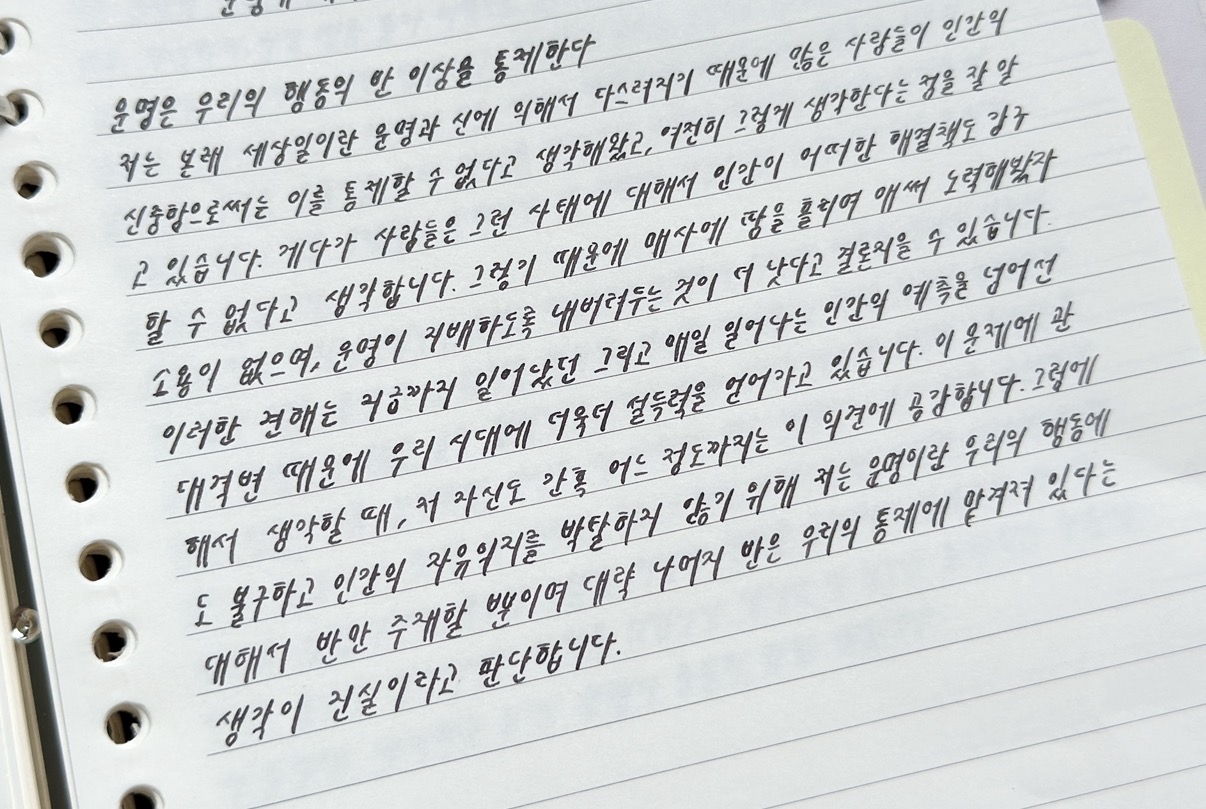 운명은 우리의 행동의 반 이상을 통제한다
저는 본래 세상일이란 운명과 신에 의해서 다스려지기 때문에 많은 사람들이 인간의
신중함으로써는 이를 통제할 수 없다고 생각해왔고, 여전히 그렇게 생각한다는 점을 잘 알
고 있습니다. 게다가 사람들은 그런 사태에 대해서 인간이 어떠한 해결책도 강구
할 수 없다고 생각합니다. 그렇기 때문에 매사에 땀을 흘리며 애써 노력해봤자
소용이 없으며, 운명이 지배하도록 내버려두는 것이 더 낫다고 결론지을 수 있습니다.
이러한 견해는 지금까지 일어났던 그리고 매일 일어나는 인간의 예측을 넘어선
대격변 때문에 우리 시대에 더욱더 설득력을 얻어가고 있습니다. 이 문제에 관
해서 생각할 때, 저 자신도 간혹 어느 정도까지는 이 의견에 공감합니다. 그럼에
도 불구하고 인간의 자유의지를 박탈하지 않기 위해 저는 운명이란 우리의 행동에
대해서 반만 주재할 뿐이며 대략 나머지 반은 우리의 통제에 맡겨져 있다는
생각이 진실이라고 판단합니다.